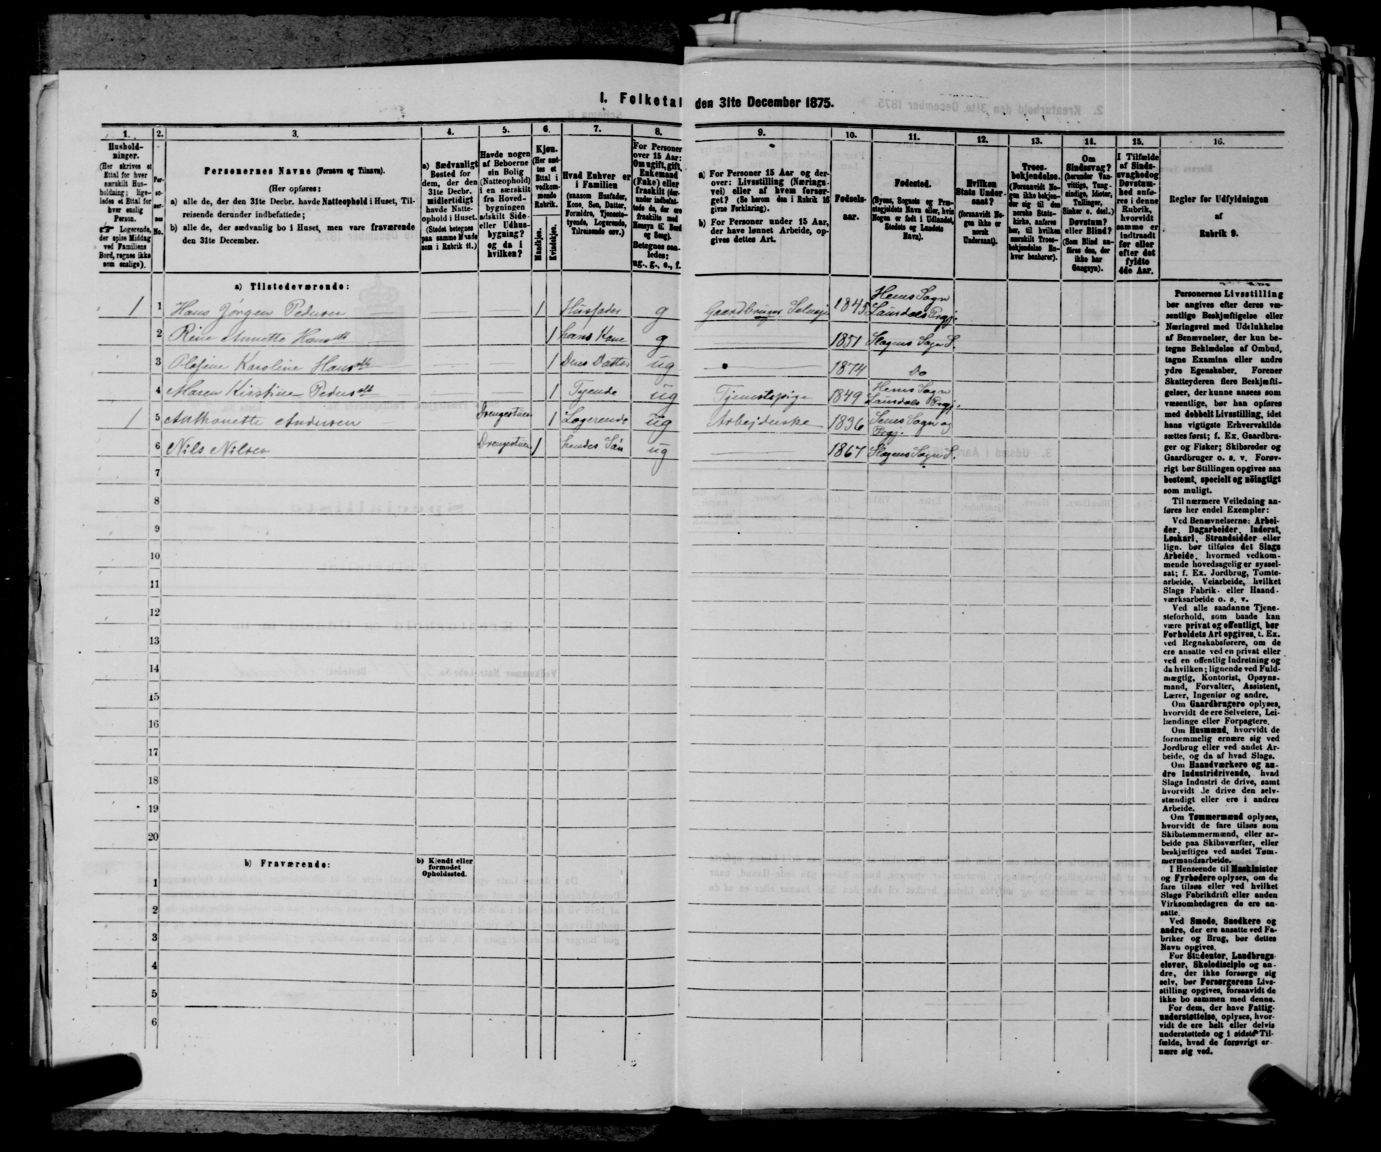 1. Folketal den 31te December 1875.
1. 2. 3. 4. 5. 6. 7. 8. 9. 10. 11. 12. 13. 14. 15. 16.
Hushold-
ninger.
(Her skrives et
Ettal for hver
særskilt Hus-
holdning; lige-
ledes et Ettal for
hver enslig
Person.
Logerende,
der spise Middag
ved Familiens
Bord, regnes ikke
som enslige).
Personernes Navne (Fornavn og Tilnavn).
(Her opføres:
a) alle de, der den 31te Decbr. havde Natteophold i Huset, Til-
reisende derunder indbefattede;
b) alle de, der sædvanlig bo i Huset, men vare fraværende
den 31te December.
a) Sædvanligt
Bosted for
dem, der den
31te Decbr.
midlertidigt
havde Natte-
ophold i Huset.
(Stedet betegnes
paa samme Maade
som i Rubrik 11.)
Havde nogen
af Beboerne
sin Bolig
(Natteophold)
i en særskilt
fra Hoved-
bygningen
adskilt Side-
eller Udhus-
bygning?
og da i
hvilken?
Kjøn.
(Her sæt-
tes et
Ettal i
vedkom-
mende
Rubrik.
Mandkjøn.
Kvindekjøn.
Hvad Enhver er
i Familien
(saasom Husfader,
Kone, Søn, Datter,
Forældre, Tjeneste-
tyende, Logerende,
Tilreisende osv.)
For Personer
over 15 Aar:
Om ugift, gift,
Enkemand
(Enke) eller
fraskilt
Betegnes saa-
ledes:
ug., g., e., f.
a) For Personer 15 Aar og der-
over: Livsstilling (Nærings-
vei) eller af hvem forsør-
get? (Se herom den i Rubrik 16
givne Forklaring).
b) For Personer under 15 Aar,
der have lønnet Arbeide, op-
gives dettes Art.
Fødsels-
aar.
Fødested.
(Byens, Sognets og Præ-
stegjeldets Navn eller, hvis
Nogen er født i Udlandet,
Stedets og Landets
Navn).
Hvilken
Stats Under-
saat?
(forsaavidt No-
gen ikke er
norsk
Undersaat).
Troes-
bekjendelse.
(Forsaavidt No-
gen ikke bekjen-
der sig til den
norske Stats-
kirke, anføres
her, til hvilken
særskilt Troes-
bekjendelse En-
hver henhører).
Om
Sindssvag?
(herunder Van-
vittige, Tung-
sindige, Idioter,
Sinker o. desl.)
Døvstum?
eller Blind?
(Som Blind an-
føres den, der
ikke har
Gangsyn).
I Tilfælde
af Sinds-
svaghed og
Døvstum-
hed anfø-
res i denne
Rubrik,
hvorvidt
samme er
indtraadt
før eller
efter det
fyldte
4de Aar.
Regler for Udfyldningen
af
Rubrik 9.
a) Tilstedeværende:
1 1 Hans Jørgen Pedersen 1 Husfader g Gaardbruger Selveje 1845 Hems Sogn Laurdals Prgj.
2 Rine Annette Hansdt 1 hans Kone g 1851 Slagens Sogn S.
3 Olefine Karoline Hansdt 1 Deres Datter ug 1874 Do
4 Maren Kirstine Pedersdt 1 Tyende ug Tjenestepige 1849 Hems Sogn Laurdals Prgj.
1 5 Anthonette Andersen Drengestuen 1 Logerende ug Arbejderske 1836 Sems Sogn og Prgj.
6 Nils Nilsen Drengestuen 1 hendes Søn ug 1867 Slagens Sogn S.
7
8
9
10
11
12
13
14
15
16
17
18
19
20
b) Fraværende:
b) Kjendt eller
formodet
Opholdssted.
1
2
3
4
5
6
Personernes Livsstilling
bør angives efter deres væ-
sentlige Beskjæftigelse eller
Næringsvei med Udelukkelse
af Benævnelser, der kun be-
tegne Beklædelse af Ombud,
tagne Examina eller andre
ydre Egenskaber. Forener
Skatteyderen flere Beskjæfti-
gelser, der kunne ansees som
væsentlige, bør han opføres
med dobbelt Livsstilling, idet
hans vigtigste Erhvervskilde
sættes først; f. Ex. Gaardbru-
ger og Fisker; Skibsreder og
Gaardbruger o. s. v. Forøv-
rigt bør Stillingen opgives saa
bestemt, specielt og nøiagtigt
som muligt.
Til nærmere Veiledning an-
føres her endel Exempler:
Ved Benævnelserne: Arbei-
der, Dagarbeider, Inderst,
Løskarl, Strandsidder eller
lign. bør tilføies det Slags
Arbeide, hvormed vedkom-
mende hovedsagelig er syssel-
sat; f. Ex. Jordbrug, Tomte-
arbeide, Veiarbeide, hvilket
Slags Fabrik- eller Haand-
værksarbeide o. s. v.
Ved alle saadanne Tjene-
steforhold, som baade kan
være privat og offentligt, bør
Forholdets Art opgives, t. Ex.
ved Regnskabsførere, om de
ere ansatte ved en privat eller
ved en offentlig Indretning og
da hvilken; lignende ved Fuld-
mægtig, Kontorist, Opsyns-
mand, Forvalter, Assistent,
Lærer, Ingeniør og andre.
Om Gaardbrugere oplyses,
hvorvidt de ere Selveiere, Lei-
lændinge eller Forpagtere.
Om Husmænd, hvorvidt de
fornemmelig ernære sig ved
Jordbrug eller ved andet Ar-
beide, og da af hvad Slags.
Om Haandværkere og an-
dre Industridrivende, hvad
Slags Industri de drive, samt
hvorvidt de drive den selv-
stændigt eller ere i andres
Arbeide.
Om Tømmermænd oplyses,
hvorvidt de fare tilsøs som
Skibstømmermænd, eller ar-
beide paa Skibsværfter, eller
beskjæftiges ved andet Tøm-
mermandsarbeide.
I Henseende til Maskinister
og Fyrbødere oplyses, om de
fare tilsøs eller ved hvilket
Slags Fabrikdrift eller anden
Virksomhedsgren de ere an-
satte.
Ved Smede, Snedkere og
andre, der ere ansatte ved Fa-
briker og Brug, bør dettes
Navn opgives.
For Studenter, Landbrugs-
elever, Skoledisciple og an-
dre, der ikke forsørge sig
selv, bør Forsørgerens Livs-
stilling opgives, forsaavidt de
ikke bo sammen med denne.
For dem, der have Fattig-
understøttelse, oplyses, hvor-
vidt de ere helt eller delvis
understøttede og i sidste Til-
fælde, hvad de forøvrigt er-
nære sig ved.